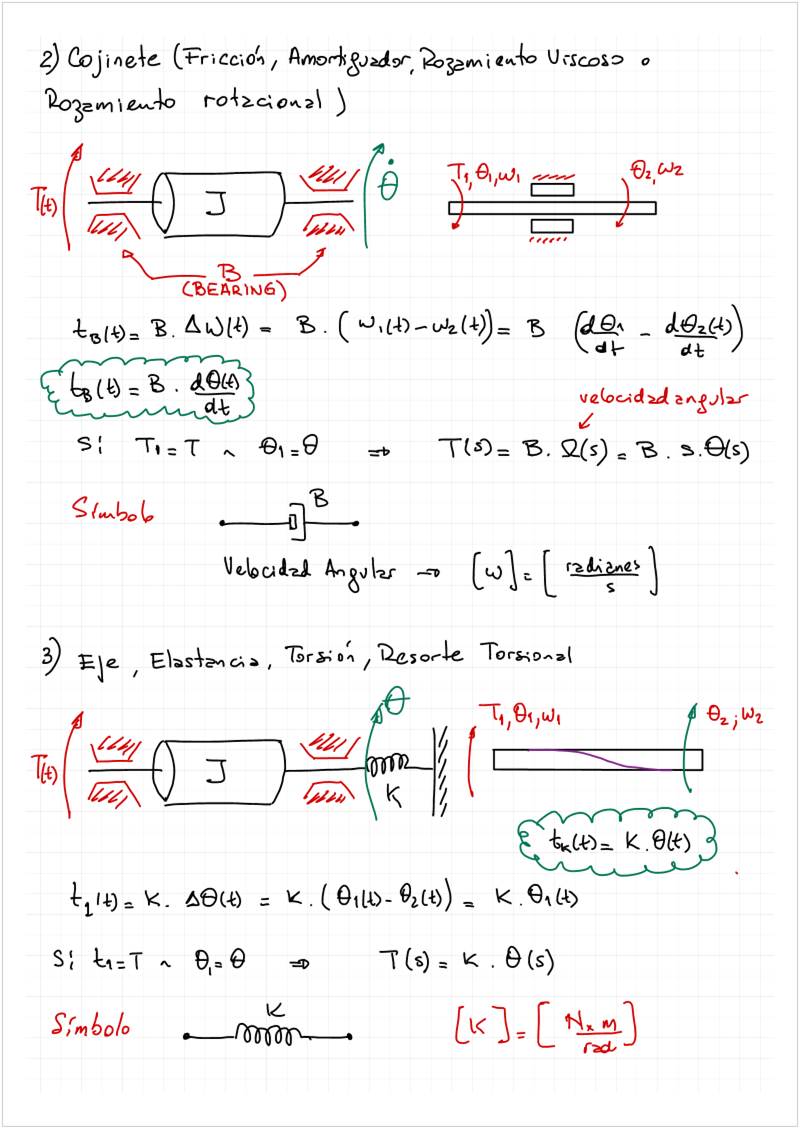 2) Cojinete (Fricción, Amortiguador, Rozamiento Viscoso o
Rozamiento rotacional)
T(t)
J
θ̇
B
(BEARING)
T₁, θ₁, ω₁
θ₂, ω₂
t_B(t) = B. Δω(t) = B. (ω₁(t) - ω₂(t)) = B (dθ₁/dt - dθ₂(t)/dt)
t_B(t) = B. dθ(t)/dt
velocidad angular
Si T₁ = T ∧ θ₁ = θ ⇒ T(s) = B. Ω(s) = B. s. θ(s)
Símbolo
B
Velocidad Angular → [ω] = [radianes/s]
3) Eje, Elastancia, Torsión, Resorte Torsional
T(t)
J
θ
K
T₁, θ₁, ω₁
θ₂; ω₂
t_K(t) = K. θ(t)
t₁(t) = K. Δθ(t) = K. (θ₁(t) - θ₂(t)) = K. θ₁(t)
Si t₁ = T ∧ θ₁ = θ ⇒ T(s) = K. θ(s)
Símbolo
K
[K] = [N x m/rad]